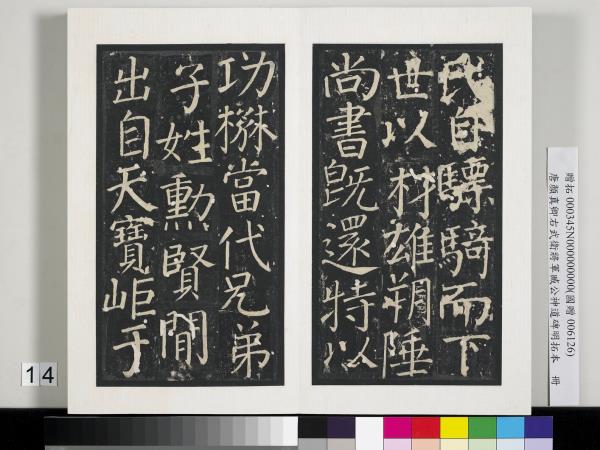 氏自驃騎而下
世以材雄朔陲
尚書既還特以
功懋當代兄弟
子姓勳賢間
出自天寶岠于
贈拓 000345N000000000(國贈 006126)
唐顏真卿右武衛將軍臧公神道碑明拓本 冊
14